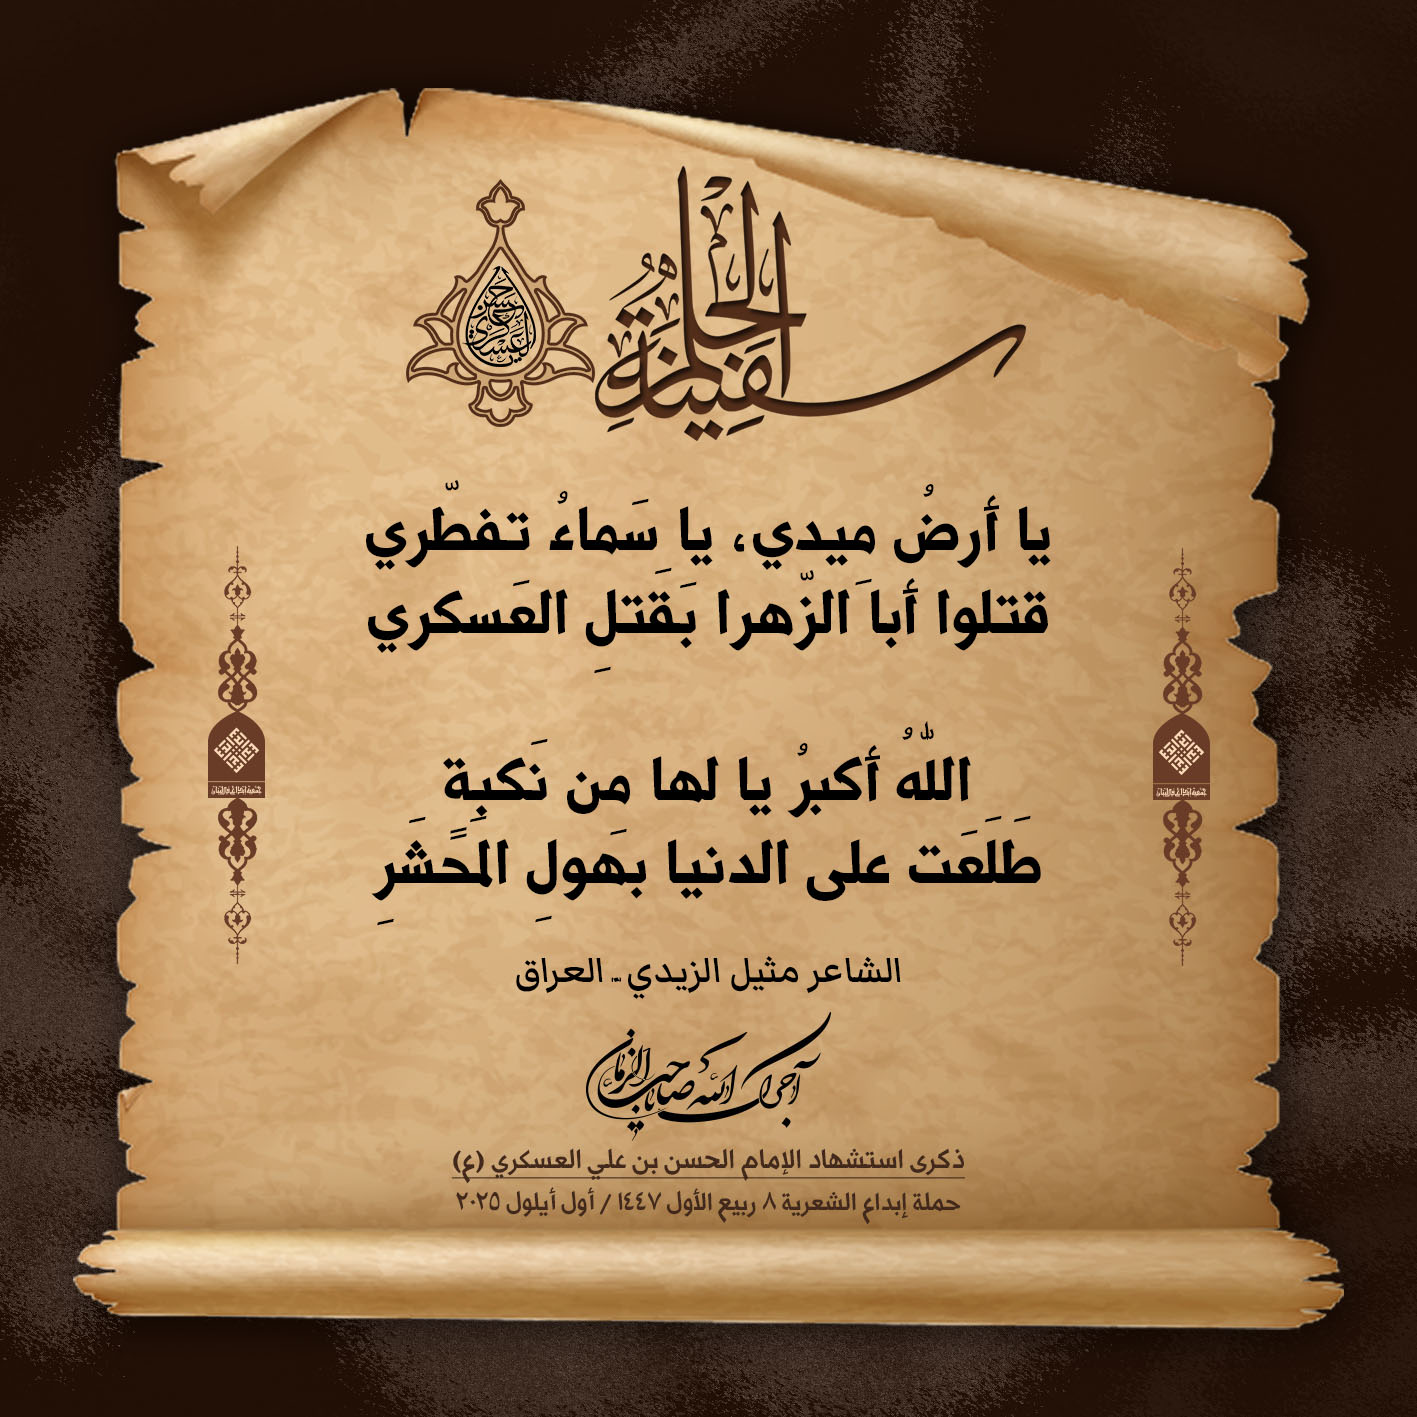 سفينة الحلم
الحسن العسكري
يا أرضُ ميدي، يا سَماءُ تفطّري
قتلوا أبا الزّهرا بقَتلِ العَسكري
اللهُ أكبرُ يا لها من نَكبةٍ
طَلَعَت على الدنيا بهَولِ المَحشَرِ
الشاعر مثيل الزيدي - العراق
آجرك الله يا صاحب الزمان
ذكرى استشهاد الإمام الحسن بن علي العسكري (ع)
حملة إبداع الشعرية ٨ ربيع الأول ١٤٤٧ / أول أيلول ٢٠٢٥